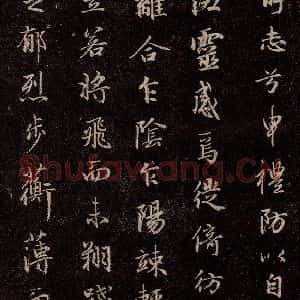 志兮申禮防以自
洛靈感焉徙倚彷
離合乍陰乍陽竦輕
若將飛而未翔踐
之郁烈步衡薄
Shufawang.CN